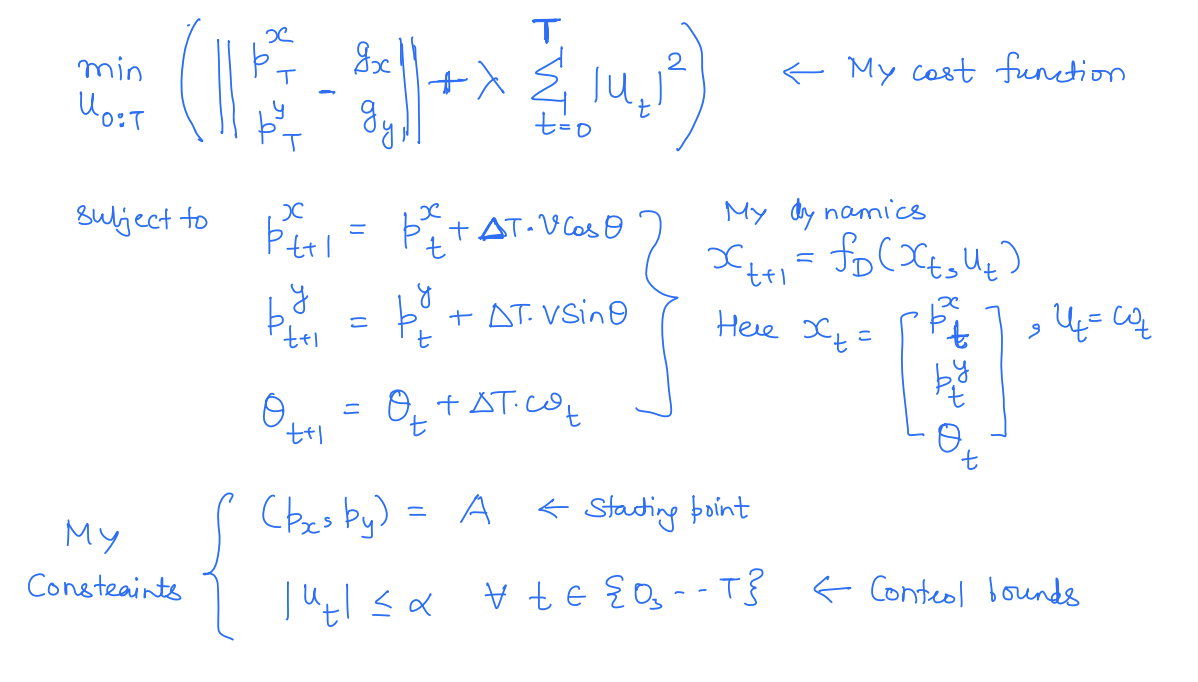 min U₀:T ( ‖ pˣ_T p^y_T - gₓ g_y ‖ + λ Σ_{t=0}^{T} |u_t|² ) ← My cost function
subject to pˣ_{t+1} = pˣ_t + ΔT·V cos θ
p^y_{t+1} = p^y_t + ΔT·V sin θ
θ_{t+1} = θ_t + ΔT·ω_t
My dynamics
x_{t+1} = f_D(x_t, u_t)
Here x_t = [ pˣ_t p^y_t θ_t ], u_t = ω_t
My Constraints
(pₓ, p_y) = A ← Starting point
|u_t| ≤ α ∀ t ∈ {0, -- T} ← Control bounds